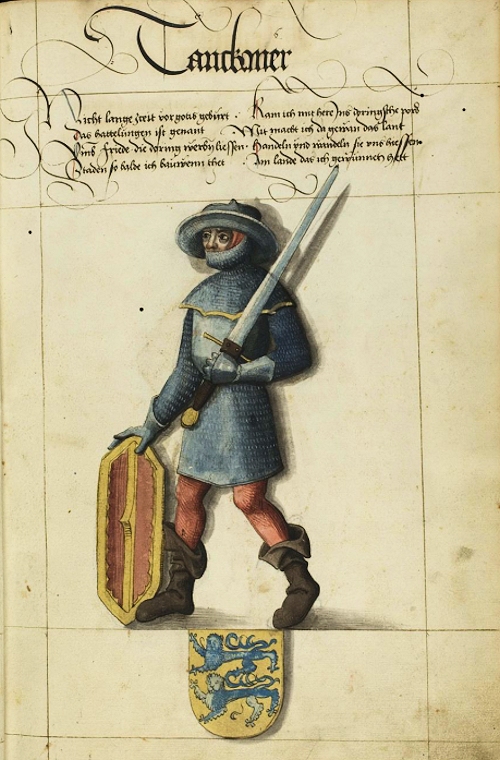 Tanckmer
Nicht lange zceit vor gotis geburt · Kam ich mit here Jns doringsche port
Das hattelungen ist genant Mit macht ich da gewan das lant
Vnns friede die doring werbn liessen · Handeln vnd wandeln sie vns hiessen
Staden so balde ich bauwenn thet Im lande das ich gewunnen hett